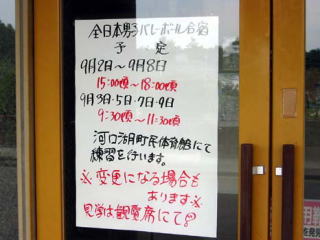 全日本男子バレーボール合宿
予定
9月2日～9月8日
15:00頃～18:00頃
9月3日・5日・7日・9日
9:30頃～11:30頃
河口湖町民体育館にて
練習を行います。
※変更になる場合も
あります※
見学は観覧席にて